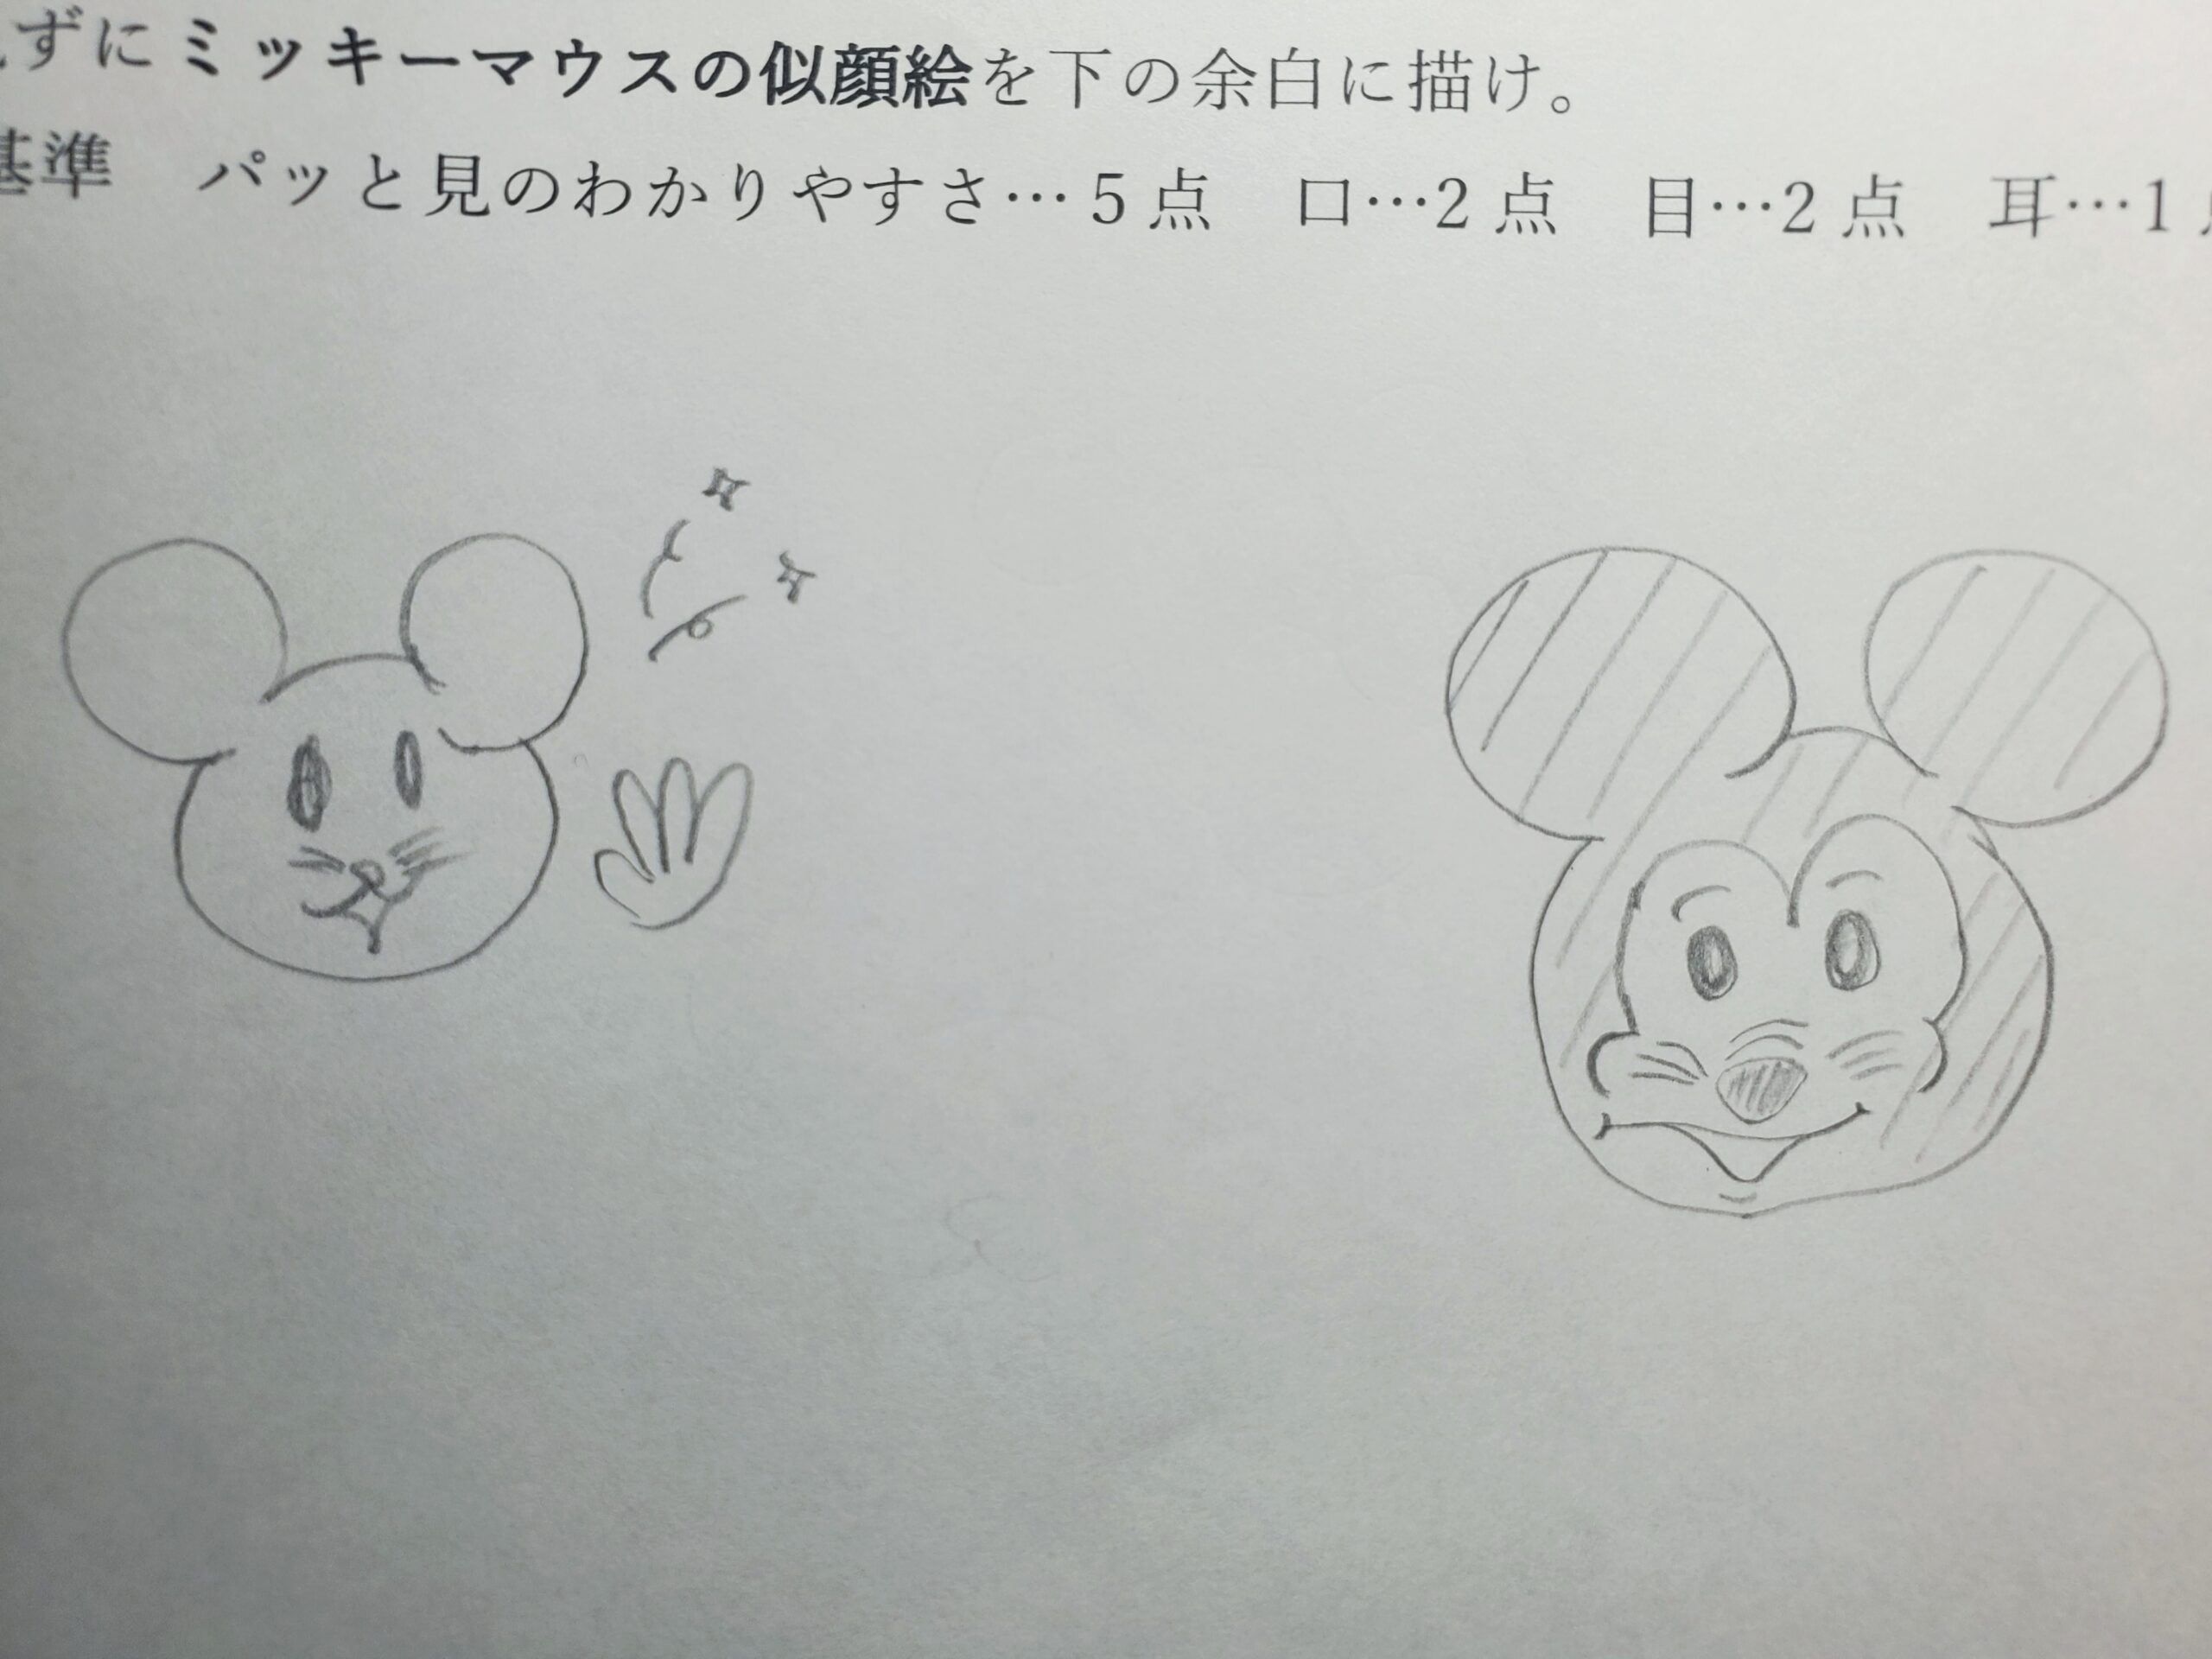 ずにミッキーマウスの似顔絵を下の余白に描け。
基準　パッと見のわかりやすさ…5点　口…2点　目…2点　耳…1